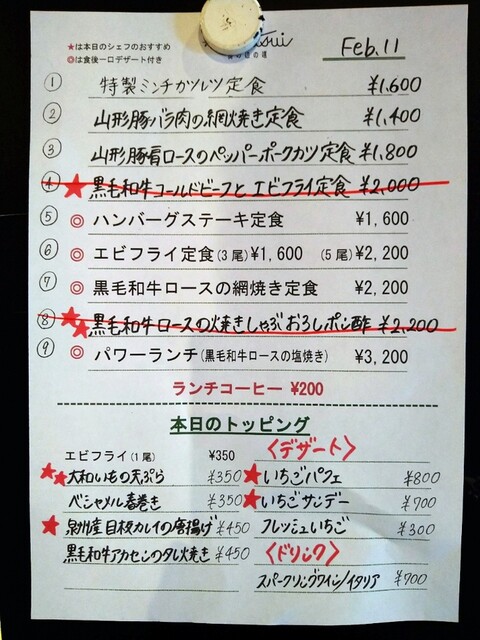 ★は本日のシェフのおすすめ
◎は食後一口デザート付き
Feb.11
① 特製ミンチカツレツ定食 ¥1,600
② 山形豚バラ肉の網焼き定食 ¥1,400
③ 山形豚肩ロースのペッパーポークカツ定食 ¥1,800
④ ★ 黒毛和牛コールドビーフとエビフライ定食 ¥2,000
⑤ ◎ ハンバーグステーキ定食 ¥1,600
⑥ ◎ エビフライ定食(3尾)¥1,600 (5尾)¥2,200
⑦ ◎ 黒毛和牛ロースの網焼き定食 ¥2,200
⑧ ★★ 黒毛和牛ロースの焼きしゃぶおろしポン酢 ¥2,200
⑨ ◎ パワーランチ(黒毛和牛ロースの塩焼き) ¥3,200
ランチコーヒー ¥200
本日のトッピング
エビフライ(1尾) ¥350
★★大和いもの天ぷら ¥350
ベシャメル春巻き ¥350
★泉州産目板カレイの唐揚げ ¥450
黒毛和牛アカセンのタレ焼き ¥450
〈デザート〉
★いちごパフェ ¥800
★いちごサンデー ¥700
フレッシュいちご ¥300
〈ドリンク〉
スパークリングワイン/イタリア ¥700